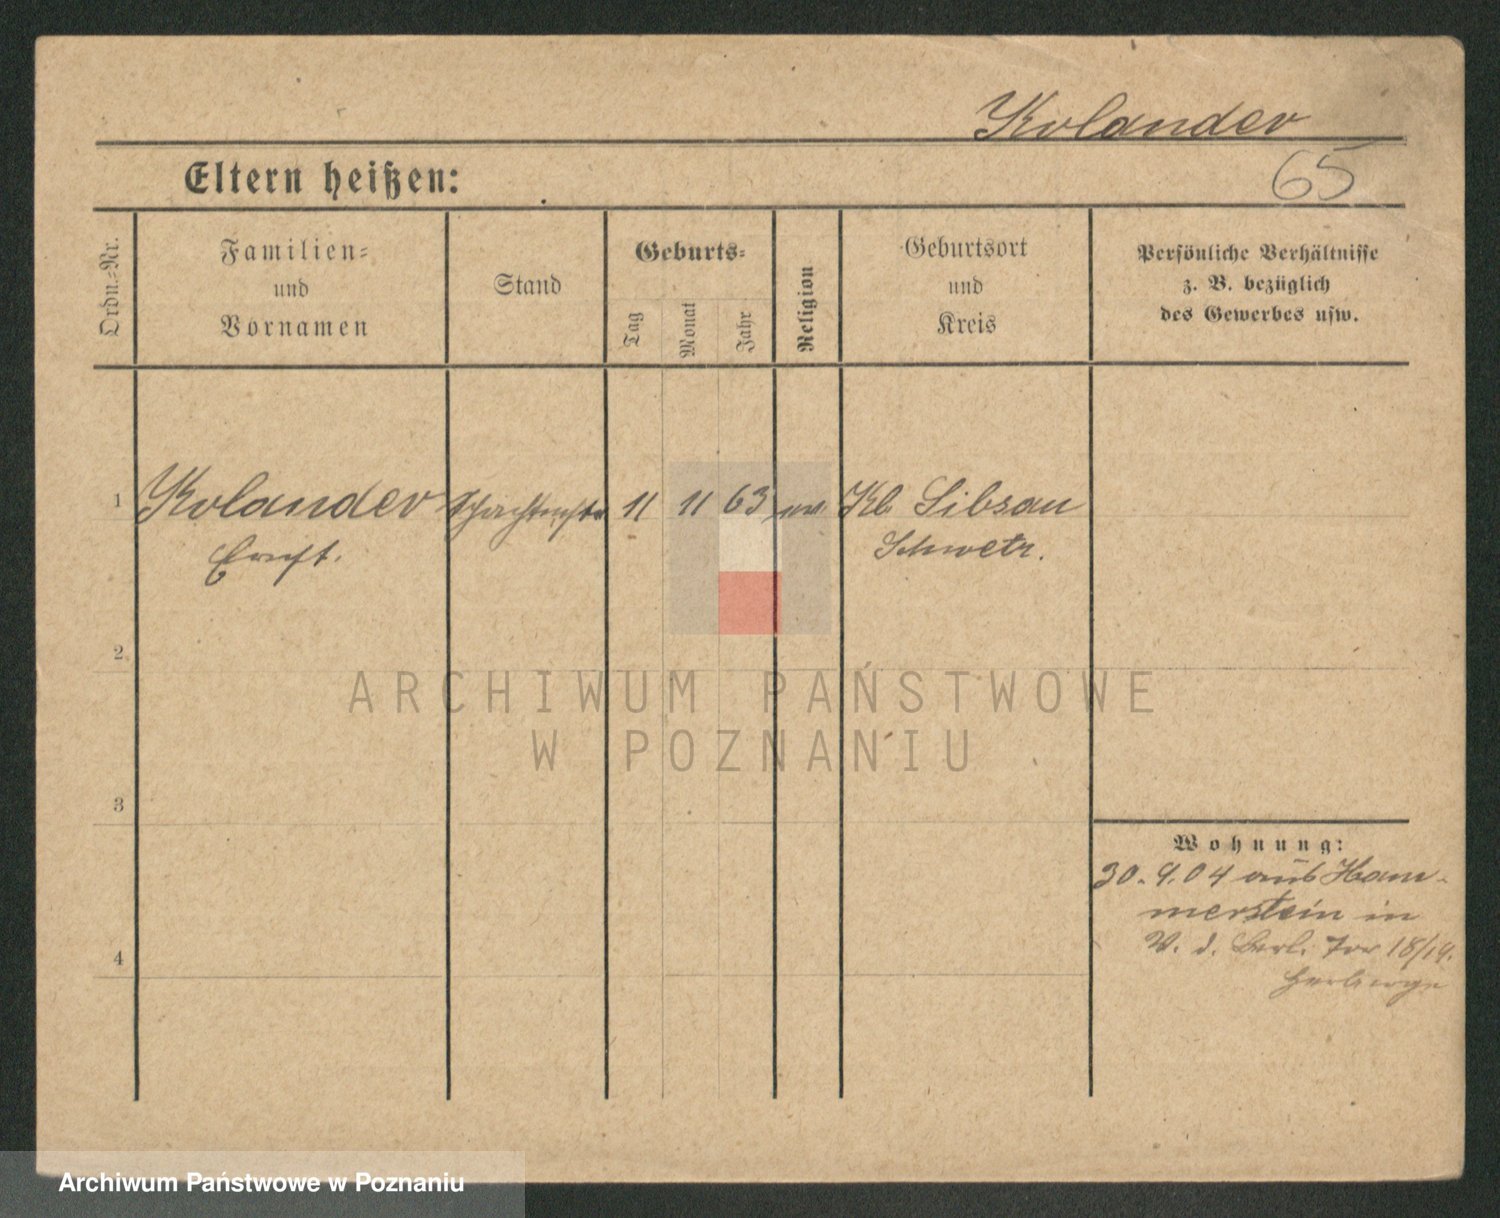 Kolander
65
Eltern heißen:
Ordn.-Nr.
Familien-
und
Vornamen
Stand
Geburts-
Tag
Monat
Jahr
Religion
Geburtsort
und
Kreis
Persönliche Verhältnisse
z. B. bezüglich
des Gewerbes usw.
1 Kolander 11 11 63 Kl. Sibsau
Ernst. Schwetz.
2
3
4
Wohnung:
30. 9. 04 aus Ham-
merstein in
V. d. Berl. Tor 18/19.
Herberge
ARCHIWUM PAŃSTWOWE
W POZNANIU
Archiwum Państwowe w Poznaniu